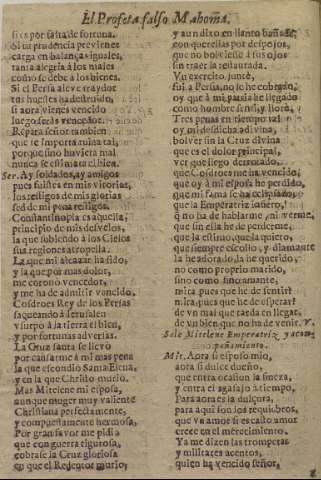 El Profeta falso Mahoma.
si es por falta de fortuna.
Si tu prudencia previenes
carga en balanças iguales,
tanta alegria à los males
como se debe à los bienes.
Si el Persa aleve traydor
tus huestes ha destruido,
si aora vienes vencido
luego seràs vencedor.
Repara señor tambien
que te importa
porque sino huviera mal
nunca se estimara el bien.
Ser. Ay soldados, ay amigos
pues fuistes en mis vitorias,
los testigos de mis glorias
sed de mi pena testigos.
Constantinopla es aquella,
principio de mis desvelos,
la que subiendo à los Cielos
sus regiones atropella.
La que mi alcaçar ha sido,
y la que por mas dolor,
me coronò vencedor
y me ha de admitir vencido.
Cosdroes Rey de los Persas
saqueando à Jerusalen
usurpò à la tierra el bien,
y por fortunas adversas.
La Cruz santa se llevò
por causarme à mi mas pena
la que escondio Santa Elena,
y en la que Christo murio.
Mas Mitelene mi esposa,
aunque muger muy valiente
Christiana perfectamente,
y compuestamente hermosa,
Por gran favor me pidia
que con guerra rigurosa,
cobrasse la Cruz gloriosa
en que el Redentor murio,
y aun dixo en llanto bañada
con querellas por despojos,
que no bolviesse à sus ojos
sin traer la restaurada.
Un exercito juntè,
fui à Persia, no lo he cobrado,
oy que à mi patria he llegado
como hombre sentì, y llorè,
Tres penas en tiempo tal
oy mi desdicha adivina,
bolver sin la Cruz divina
que es el dolor principal,
ver que llego derrotado,
que Cosdroes me ha vencido,
que oy à mi esposa he perdido,
que mi fama se ha eclipsado,
que la Emperatriz señora,
q̃ no ha de hablarme ni verme,
que sin ella he de perderme,
que la estimo, que la quiero,
que siempre escollo, y diamante
la he adorado, la he querido,
no como proprio marido,
sino como fino amante,
mira pues que he de sentir
mira pues que he de esperar
de un mai que tarda en llegar,
de un bien que no ha de venir.
Sale Mitelene Emperatriz, y acompañamiento.
Mit. Aora si esposo mio,
aora si dulce dueño,
que entra ocasion la fineza,
y entra el agasajo à tiempo,
Para aora es la dulçura,
para aqui son los requiebros,
que un amor si escaso amor
crece en el merecimiento.
Ya me dizen las trompetas
y militares acentos,
quien ha vencido señor,